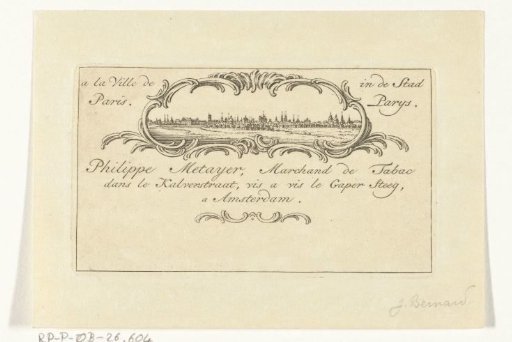 a la Ville de
Paris.
in de Stad
Parys.
Philippe Metayer, Marchand de Tabac
dans le Kalverstraat, vis a vis le Gaper Steeg,
a Amsterdam.
J. Bernard
RP-P-OB-26.604